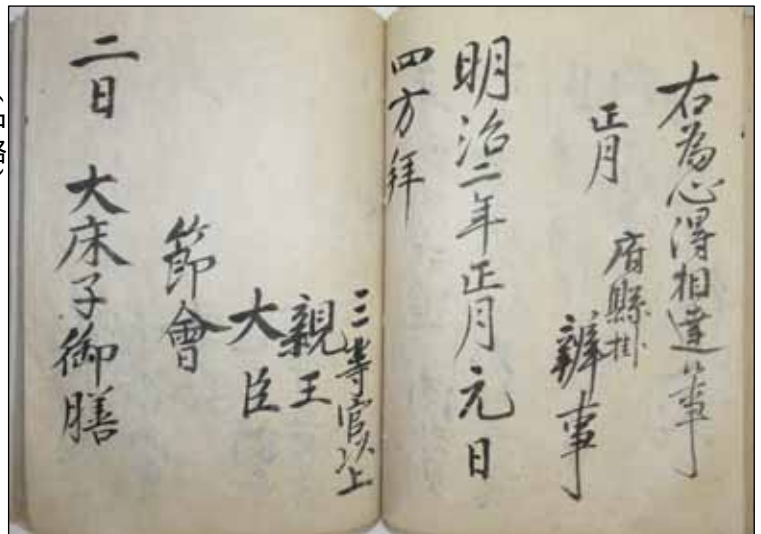 右為心得相達候事
正月
府縣掛
辨事
明治二年正月元日
四方拜
三等官以上
親王
大臣
節會
二日 大床子御膳